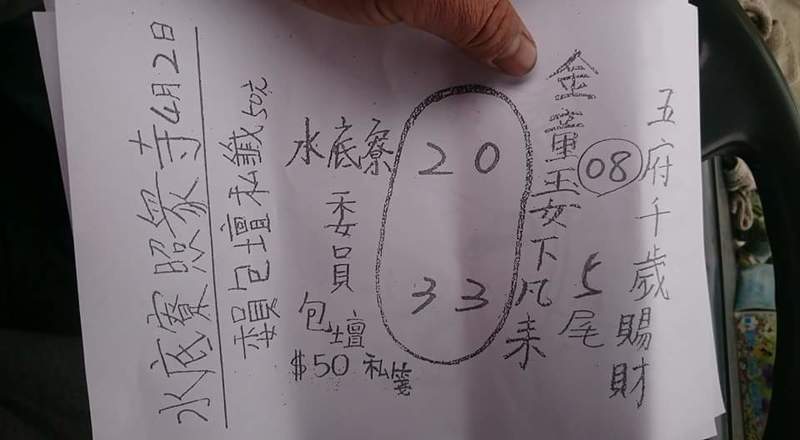 五府千歲賜財
08
5尾
金童玉女下凡来
20
33
水底寮
委員
包壇
$50 私箋
委員包壇私籤50元
水底寮照眾寺4月2日